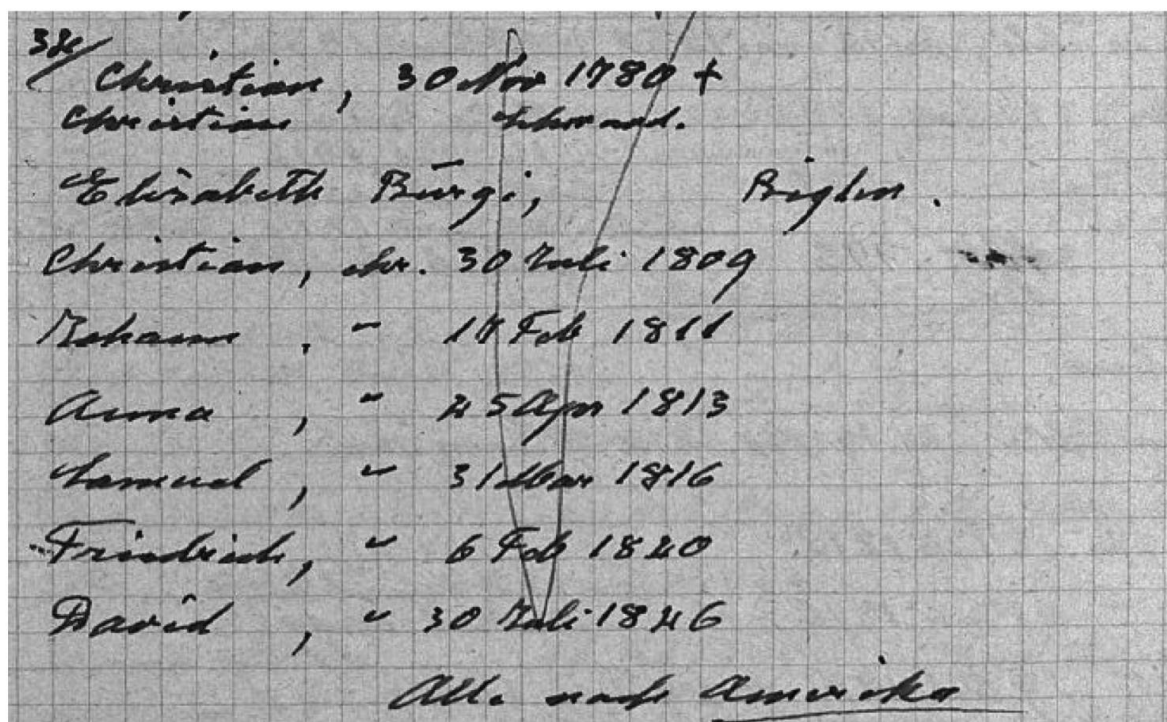 Christian, 30 Nov 1780 +
Christian
Elisabeth Bürgi, Biglen.
Christian, chr. 30 Juli 1809
Johann , " 17 Feb 1811
Anna , " 25 Apr 1813
Samuel , " 31 Mar 1816
Friedrich, " 6 Feb 1820
David , " 30 Juli 1826
Alle nach Amerika